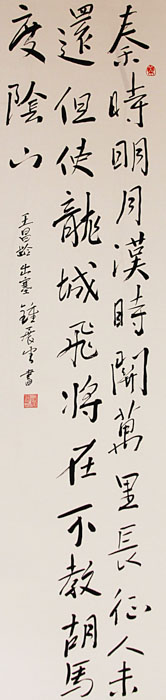 秦時明月漢時關萬里長征人未
還但使龍城飛將在不教胡馬
度陰山
王昌齡出塞 鍾彥 書